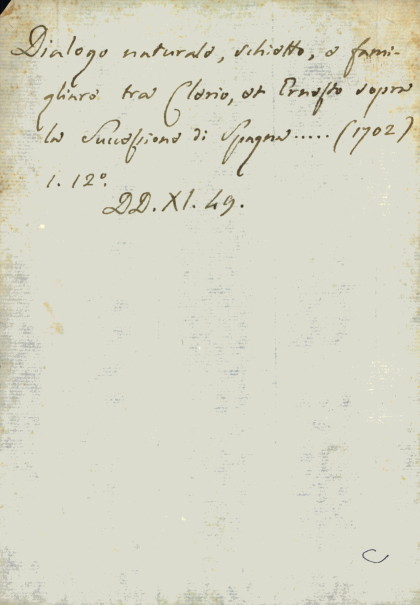 Dialogo naturale, schietto, e fami-
gliare tra Clerio, et Ernesto sopra
la Successione di Spagna..... (1702)
1. 12º.
DD. XI. 49.